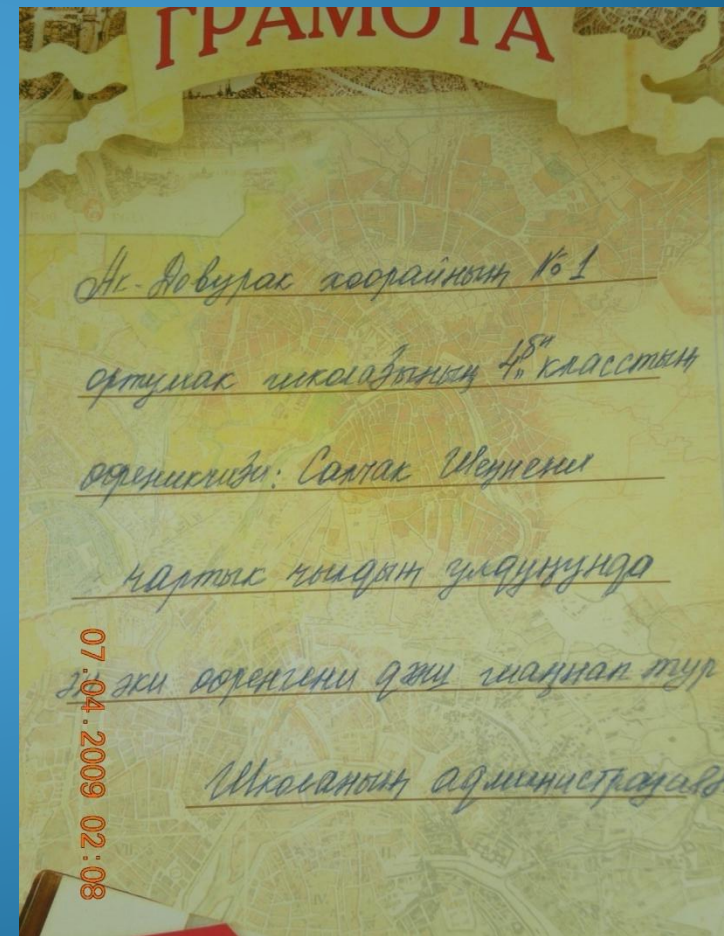 ГРАМОТА
Ак-Довурак хоорайның № 1
ортумак школазының 4 "б" класстың
өөреникчизи: Салчак Шеңнени
чартык чылдың улдуңунда
эки өөренгени дээш шаңнап тур
Школаның администрация
07.04.2009 02:08